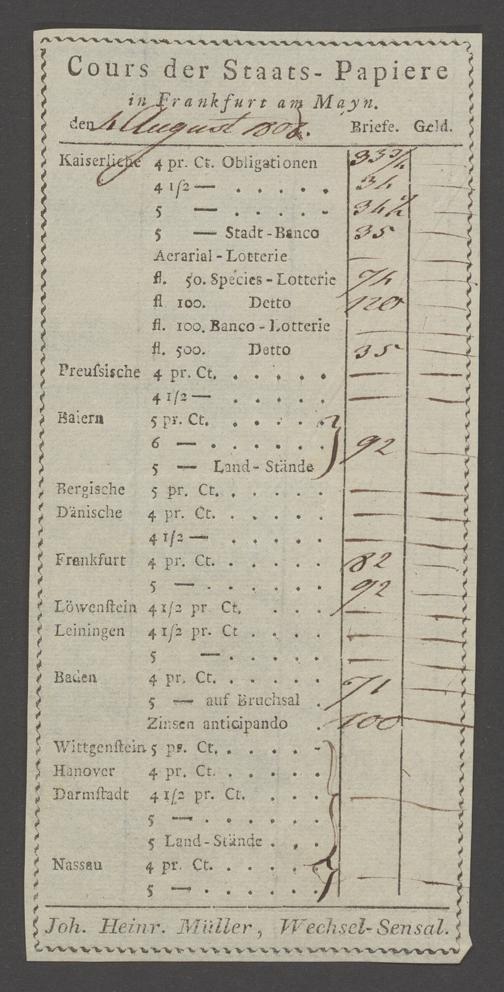 Cours der Staats-Papiere
in Frankfurt am Mayn.
den 4 August 1808. Briefe. Geld.
Kaiserliche 4 pr. Ct. Obligationen
4 1/2 — . . . . . 34
5 — . . . . . 34 1/2
5 — Stadt-Banco 35
Aerarial-Lotterie —
fl. 50. Species-Lotterie 74
fl. 100. Detto 120
fl. 100. Banco-Lotterie —
fl. 500. Detto 35
Preuſsische 4 pr. Ct. . . . . . — —
4 1/2 — . . . . . — —
Baiern 5 pr. Ct. . . . . .
6 — . . . . . . 92
5 — Land-Stände
Bergische 5 pr. Ct. . . . . . — —
Dänische 4 pr. Ct. . . . . . — —
4 1/2 — . . . . . — —
Frankfurt 4 pr. Ct. . . . . . 82
5 — . . . . . . 92
Löwenstein 4 1/2 pr. Ct. . . . — —
Leiningen 4 1/2 pr. Ct . . . . — —
5 — . . . . . — —
Baden 4 pr. Ct. . . . . .
5 — auf Bruchsal . 71
Zinsen anticipando . 100
Wittgenstein 5 pr. Ct. . . . . .
Hanover 4 pr. Ct. . . . . .
Darmstadt 4 1/2 pr. Ct. . . . . — —
5 — . . . . . .
5 Land-Stände . . .
Nassau 4 pr. Ct. . . . . .
5 — . . . . . . — —
Joh. Heinr. Müller, Wechsel-Sensal.